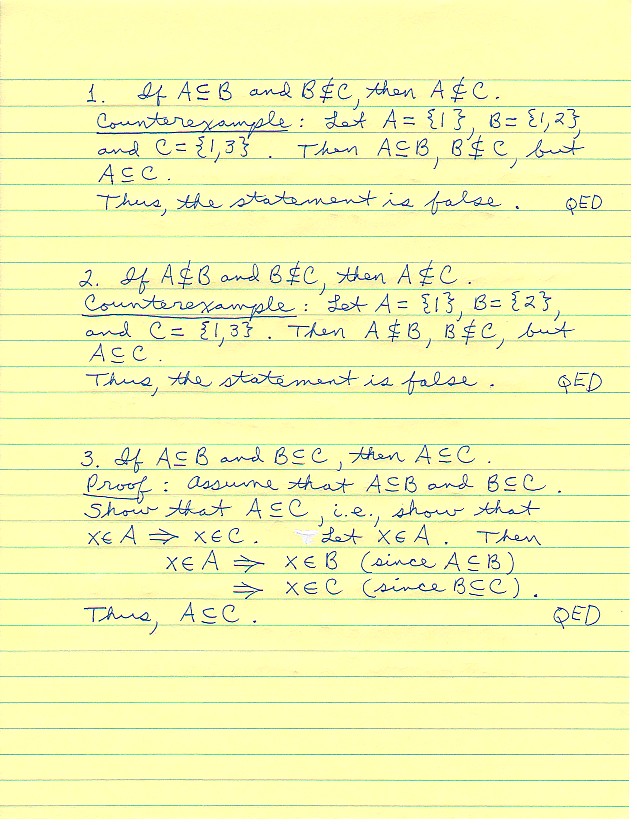 1. If A⊆B and B⊈C, then A⊈C.
Counterexample: Let A = {1}, B = {1,2},
and C = {1,3}. Then A⊆B, B⊈C, but
A⊆C.
Thus, the statement is false. QED
2. If A⊈B and B⊈C, then A⊈C.
Counterexample: Let A = {1}, B = {2},
and C = {1,3}. Then A⊈B, B⊈C, but
A⊆C.
Thus, the statement is false. QED
3. If A⊆B and B⊆C, then A⊆C.
Proof: Assume that A⊆B and B⊆C.
Show that A⊆C, i.e., show that
x∈A ⇒ x∈C. Let x∈A. Then
x∈A ⇒ x∈B (since A⊆B)
⇒ x∈C (since B⊆C).
Thus, A⊆C. QED